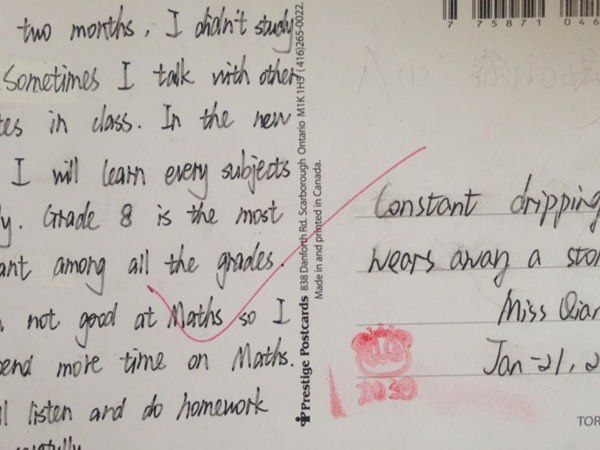 two months, I didn't study
Sometimes I talk with other
tes in class. In the new
I will learn every subjects
y. Grade 8 is the most
ant among all the grades.
not good at Maths so I
end more time on Maths.
ll listen and do homework
carefully
Prestige Postcards 838 Danforth Rd. Scarborough Ontario M1K 1H5 (416)265-0022
Made in and printed in Canada.
7 75871 046
Constant dripping
wears away a sto
Miss Qian
Jan-21, 2
TOR